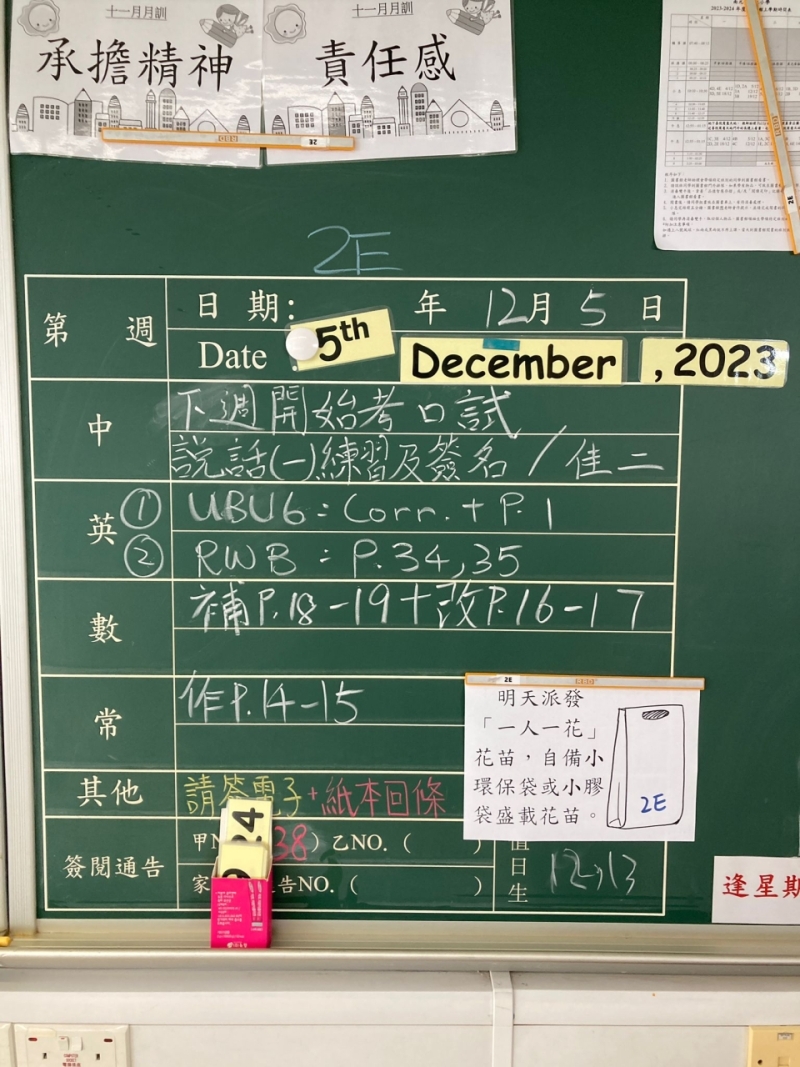 十一月月訓
承擔精神
十一月月訓
責任感
2E
2E
第 週
日 期: 年 12月 5 日
Date 5th December , 2023
中
下週開始考口試
說話(一)練習及簽名 / 佳二
英
① UBU6 : Corr. + P.1
② RWB : P.34,35
數
補P.18-19+改P.16-17
常
作P.14-15
其他
請簽電子+紙本回條
簽閱通告
甲 38) 乙NO. ( )
家 告NO. ( )
值日生
12,13
2E
明天派發
「一人一花」
花苗，自備小
環保袋或小膠
袋盛載花苗。
2E
24
逢星期